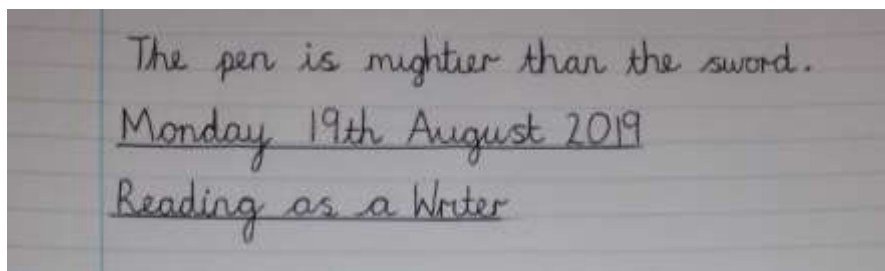 The pen is mightier than the sword.
Monday 19th August 2019
Reading as a Writer